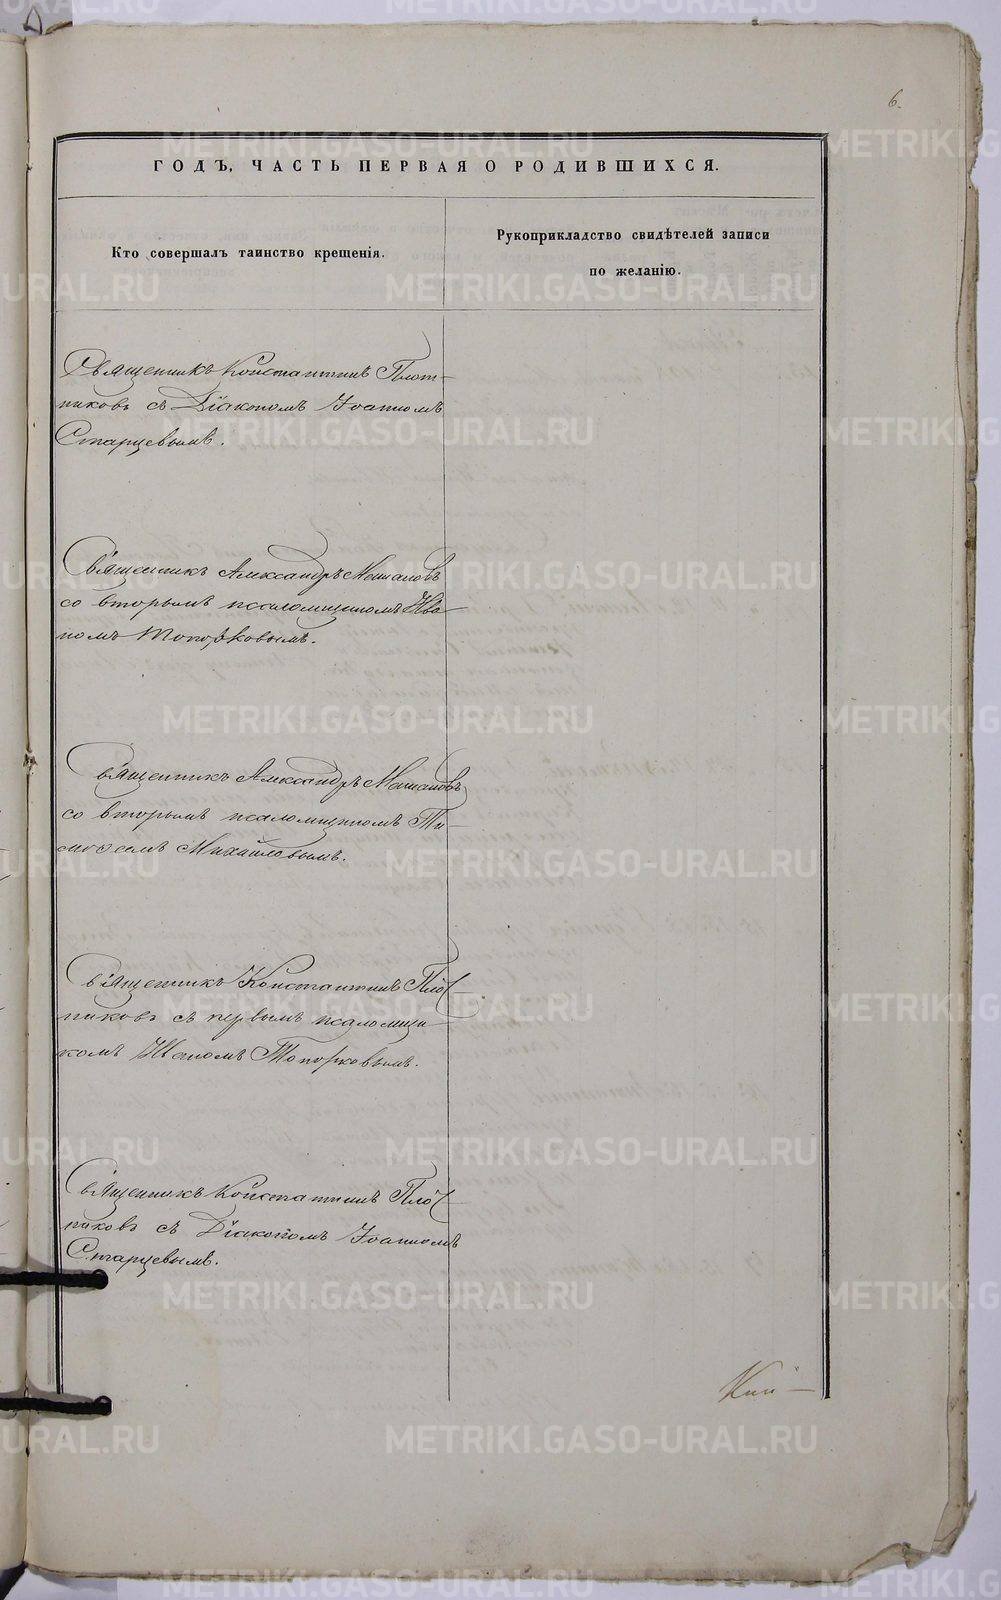 6.
ГОДЪ, ЧАСТЬ ПЕРВАЯ О РОДИВШИХСЯ.
Кто совершалъ таинство крещенія.
Рукоприкладство свидѣтелей записи
по желанію.
Священникъ Константинъ Плот-
никовъ съ Діакономъ Іоанномъ
Старцевымъ.
Священникъ Александръ
со вторымъ псаломщикомъ Ива-
номъ Топорковымъ.
Священникъ Александръ
со вторымъ псаломщикомъ Ти-
моѳеемъ Михайловымъ.
Священникъ Константинъ Плот-
никовъ съ первымъ псаломщи-
комъ Иваномъ Топорковымъ.
Священникъ Константинъ Плот-
никовъ съ Діакономъ Іоанномъ
Старцевымъ.
METRIKI.GASO-URAL.RU